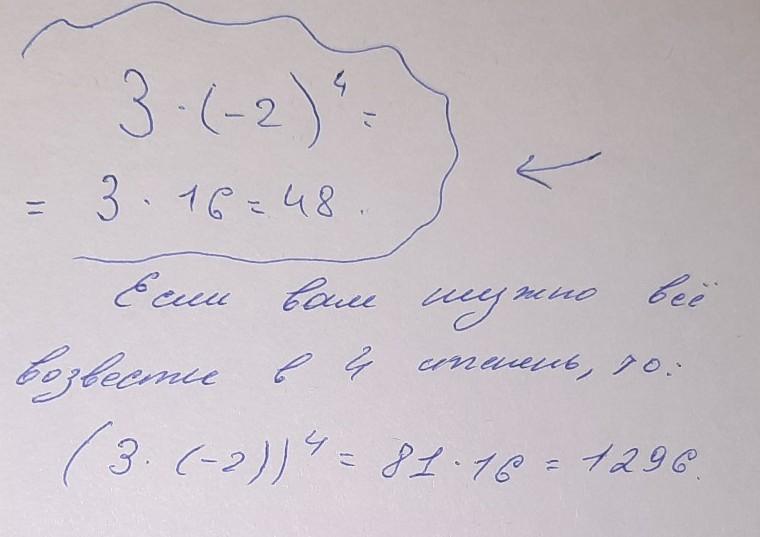 3 · (-2)⁴ =
= 3 · 16 = 48.
Если вам нужно всё
возвести в 4 степень, то:
(3 · (-2))⁴ = 81 · 16 = 1296.